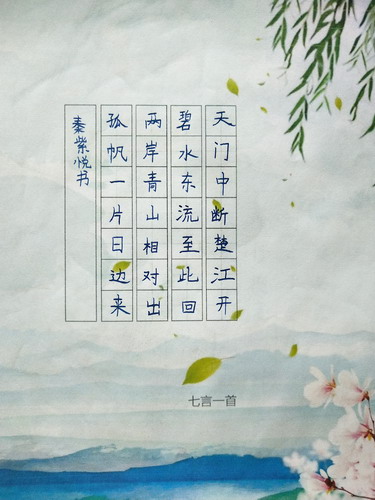 天门中断楚江开
碧水东流至此回
两岸青山相对出
孤帆一片日边来
秦紫悦书
七言一首